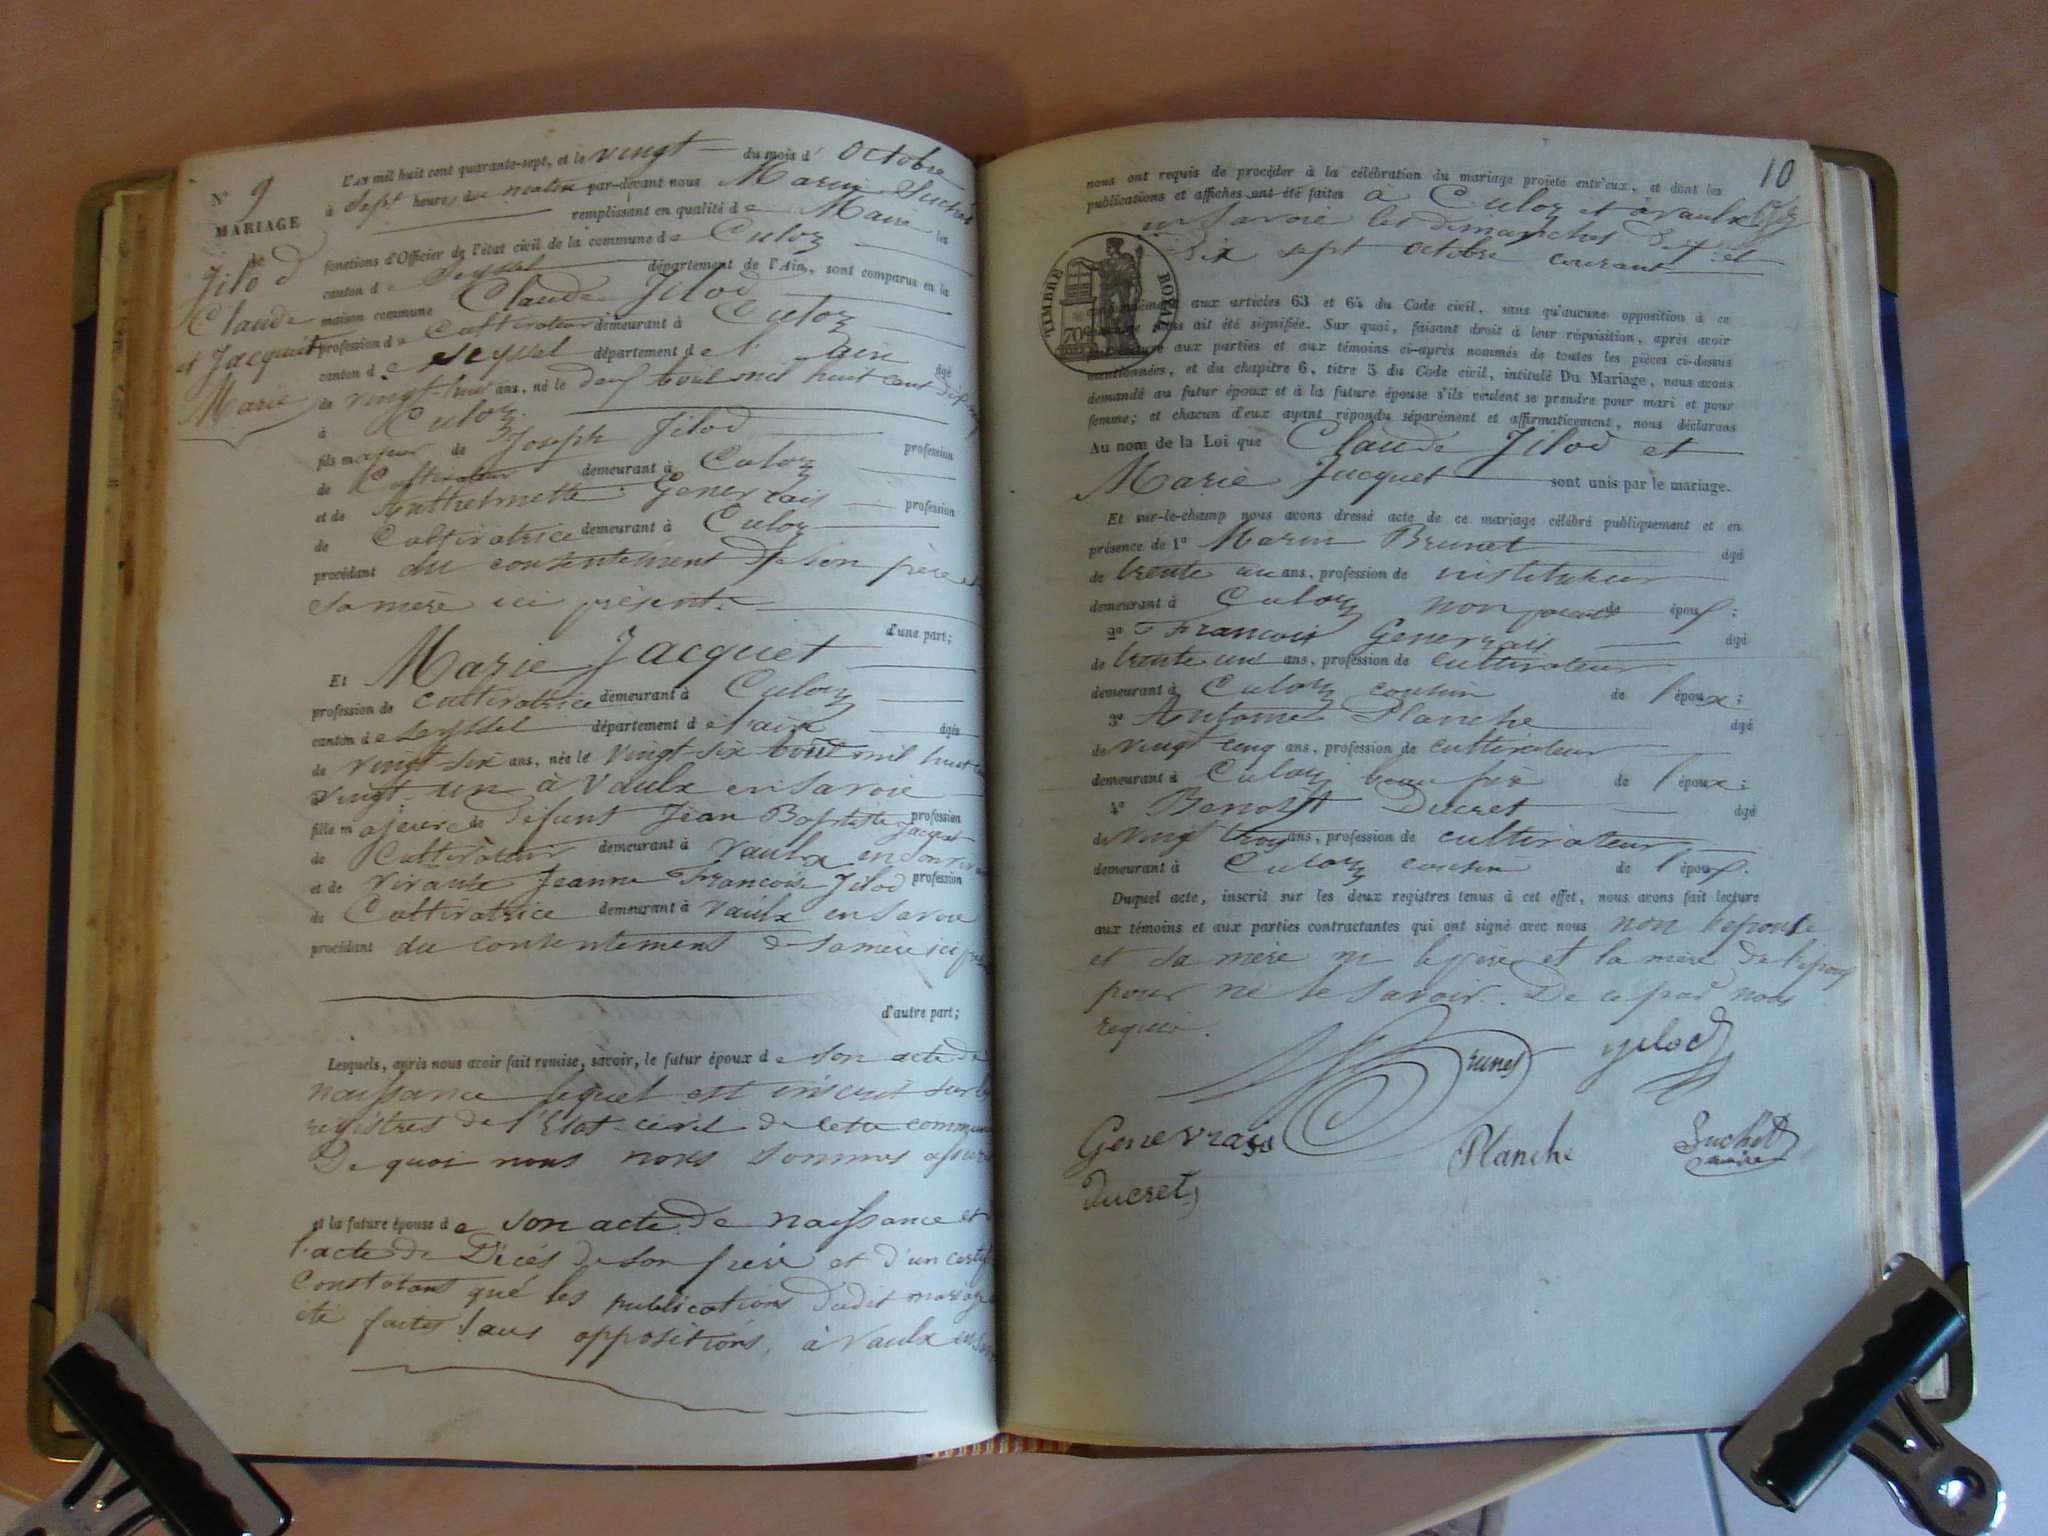 N° 9
MARIAGE
de
Jilod
Claude
et Jacquet
Marie
L'an mil huit cent quarante-sept, et le vingt du mois d' Octobre
à sept heures du matin par-devant nous Marin Suchet
remplissant en qualité de Maire les
fonctions d'Officier de l'état civil de la commune de Culoz
canton de Seyssel département de l'Ain, sont comparus en la
maison commune Claude Jilod
profession de Cultivateur demeurant à Culoz
canton de Seyssel département de l'Ain âgé
de vingt-huit ans, né le août mil huit cent
à Culoz
fils majeur de Joseph Jilod profession
de Cultivateur demeurant à Culoz
et de Anthelmette Genevrais profession
de Cultivatrice demeurant à Culoz
procédant du consentement de son père et
sa mère ici présents
d'une part;
Et Marie Jacquet
profession de cultivatrice demeurant à Culoz
canton de Seyssel département de l'ain âgée
de vingt-six ans, née le vingt-six août mil huit cent
vingt-un à Vaulx en Savoie
fille majeure de défunt Jean Baptiste Jacquet profession
de Cultivateur demeurant à Vaulx en
et de vivante Jeanne Françoise Jilod profession
de Cultivatrice demeurant à Vaulx en Savoie
procédant du consentement de sa mère ici
d'autre part;
Lesquels, après nous avoir fait remise, savoir, le futur époux de son acte de
naissance lequel est inscrit sur les
registres de l'Etat-civil de cette commune
De quoi nous nous sommes assuré
et la future épouse de son acte de naissance et
l'acte de Décés de son père et d'un
constatant que les publications dudit mariage
été faites sans oppositions, à Vaulx en
10
nous ont requis de procéder à la célébration du mariage projeté entr'eux, et dont les
publications et affiches ont été faites à Culoz et à Vaulx
en Savoie les dimanches dix et
dix sept octobre courant
TIMBRE ROYAL
70c
aux articles 63 et 64 du Code civil, sans qu'aucune opposition à ce
ait été signifiée. Sur quoi, faisant droit à leur réquisition, après avoir
aux parties et aux témoins ci-après nommés de toutes les pièces ci-dessus
mentionnées, et du chapitre 6, titre 5 du Code civil, intitulé Du Mariage, nous avons
demandé au futur époux et à la future épouse s'ils veulent se prendre pour mari et pour
femme; et chacun d'eux ayant répondu séparément et affirmativement, nous déclarons
Au nom de la Loi que Claude Jilod et
Marie Jacquet sont unis par le mariage.
Et sur-le-champ nous avons dressé acte de ce mariage célébré publiquement et en
présence de 1° Marin Brunet âgé
de trente un ans, profession de instituteur
demeurant à Culoz non parent de époux;
2° François Genevrais âgé
de trente un ans, profession de cultivateur
demeurant à Culoz cousin de l'époux;
3° Antoine Planche âgé
de vingt cinq ans, profession de cultivateur
demeurant à Culoz beau frère de l'époux;
4° Benoît Ducret âgé
de vingt trois ans, profession de cultivateur
demeurant à Culoz cousin de l'époux.
Duquel acte, inscrit sur les deux registres tenus à cet effet, nous avons fait lecture
aux témoins et aux parties contractantes qui ont signé avec nous non l'épouse
et sa mère ni le père et la mère de l'époux
pour ne le savoir. De ce par nous
requis.
Brunet
Jilod
Genevrais
Planche
Suchet
maire
Ducret